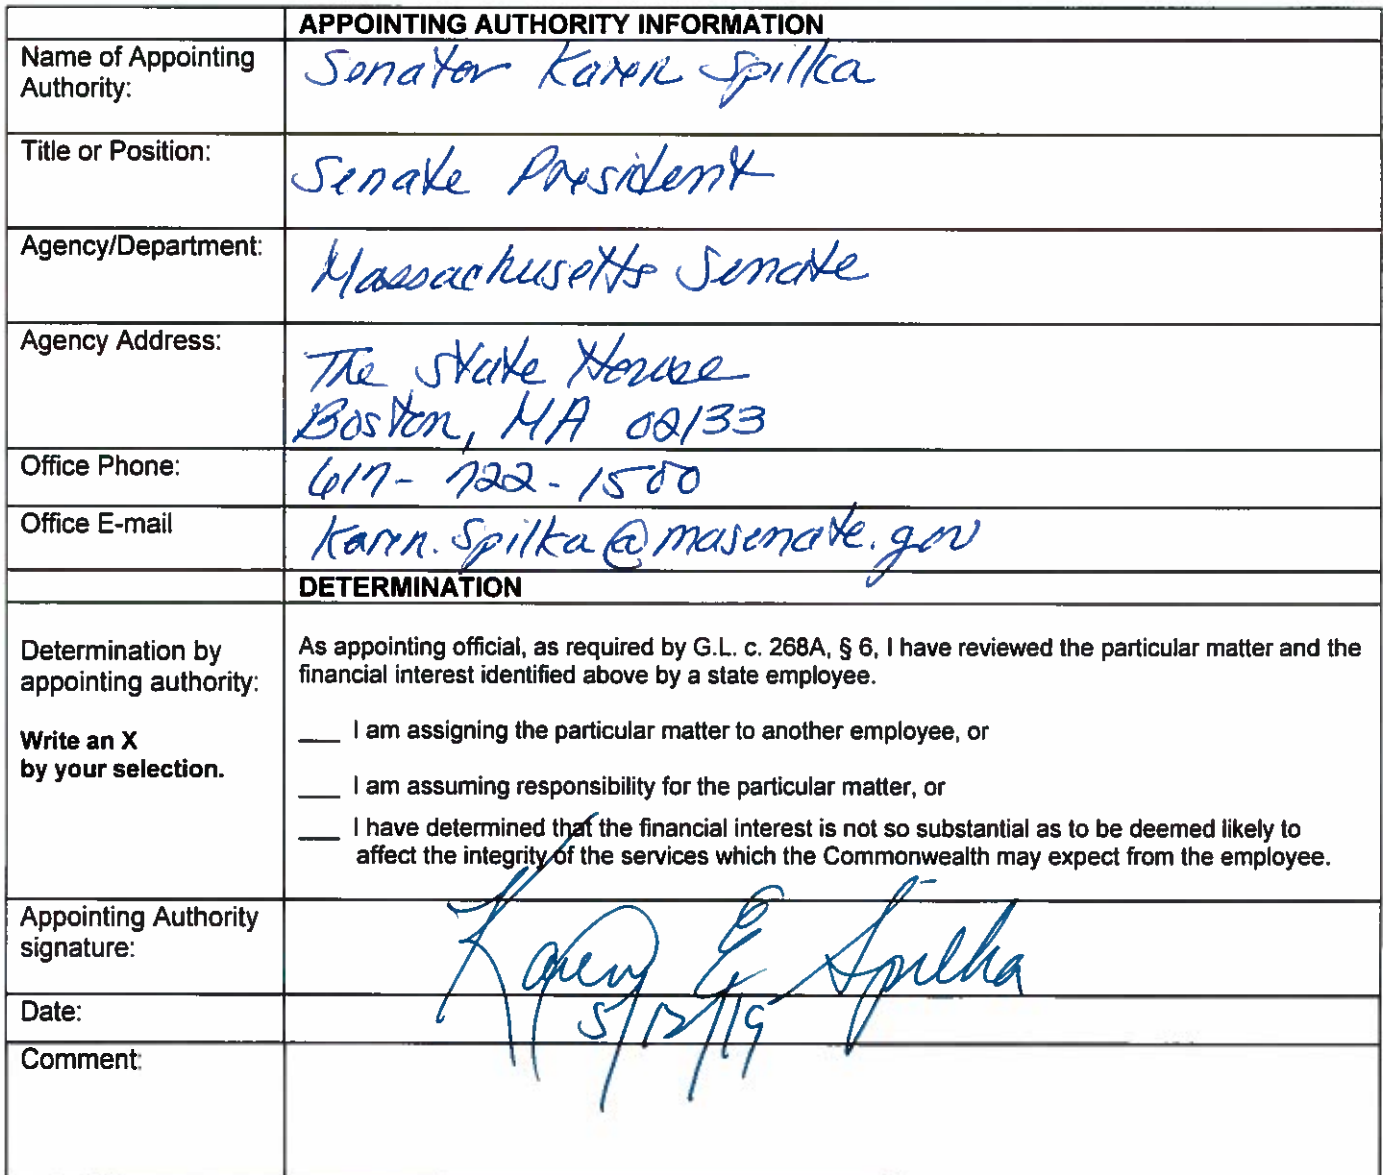 APPOINTING AUTHORITY INFORMATION
Name of Appointing Authority: Senator Karen Spilka
Title or Position: Senate President
Agency/Department: Massachusetts Senate
Agency Address: The State House
Boston, MA 02133
Office Phone: 617-722-1500
Office E-mail Karen.Spilka@masenate.gov
DETERMINATION
Determination by
appointing authority:
Write an X
by your selection.
As appointing official, as required by G.L. c. 268A, § 6, I have reviewed the particular matter and the
financial interest identified above by a state employee.
___ I am assigning the particular matter to another employee, or
___ I am assuming responsibility for the particular matter, or
___ I have determined that the financial interest is not so substantial as to be deemed likely to
affect the integrity of the services which the Commonwealth may expect from the employee.
Appointing Authority
signature: Karen E. Spilka
Date: 5/12/19
Comment: